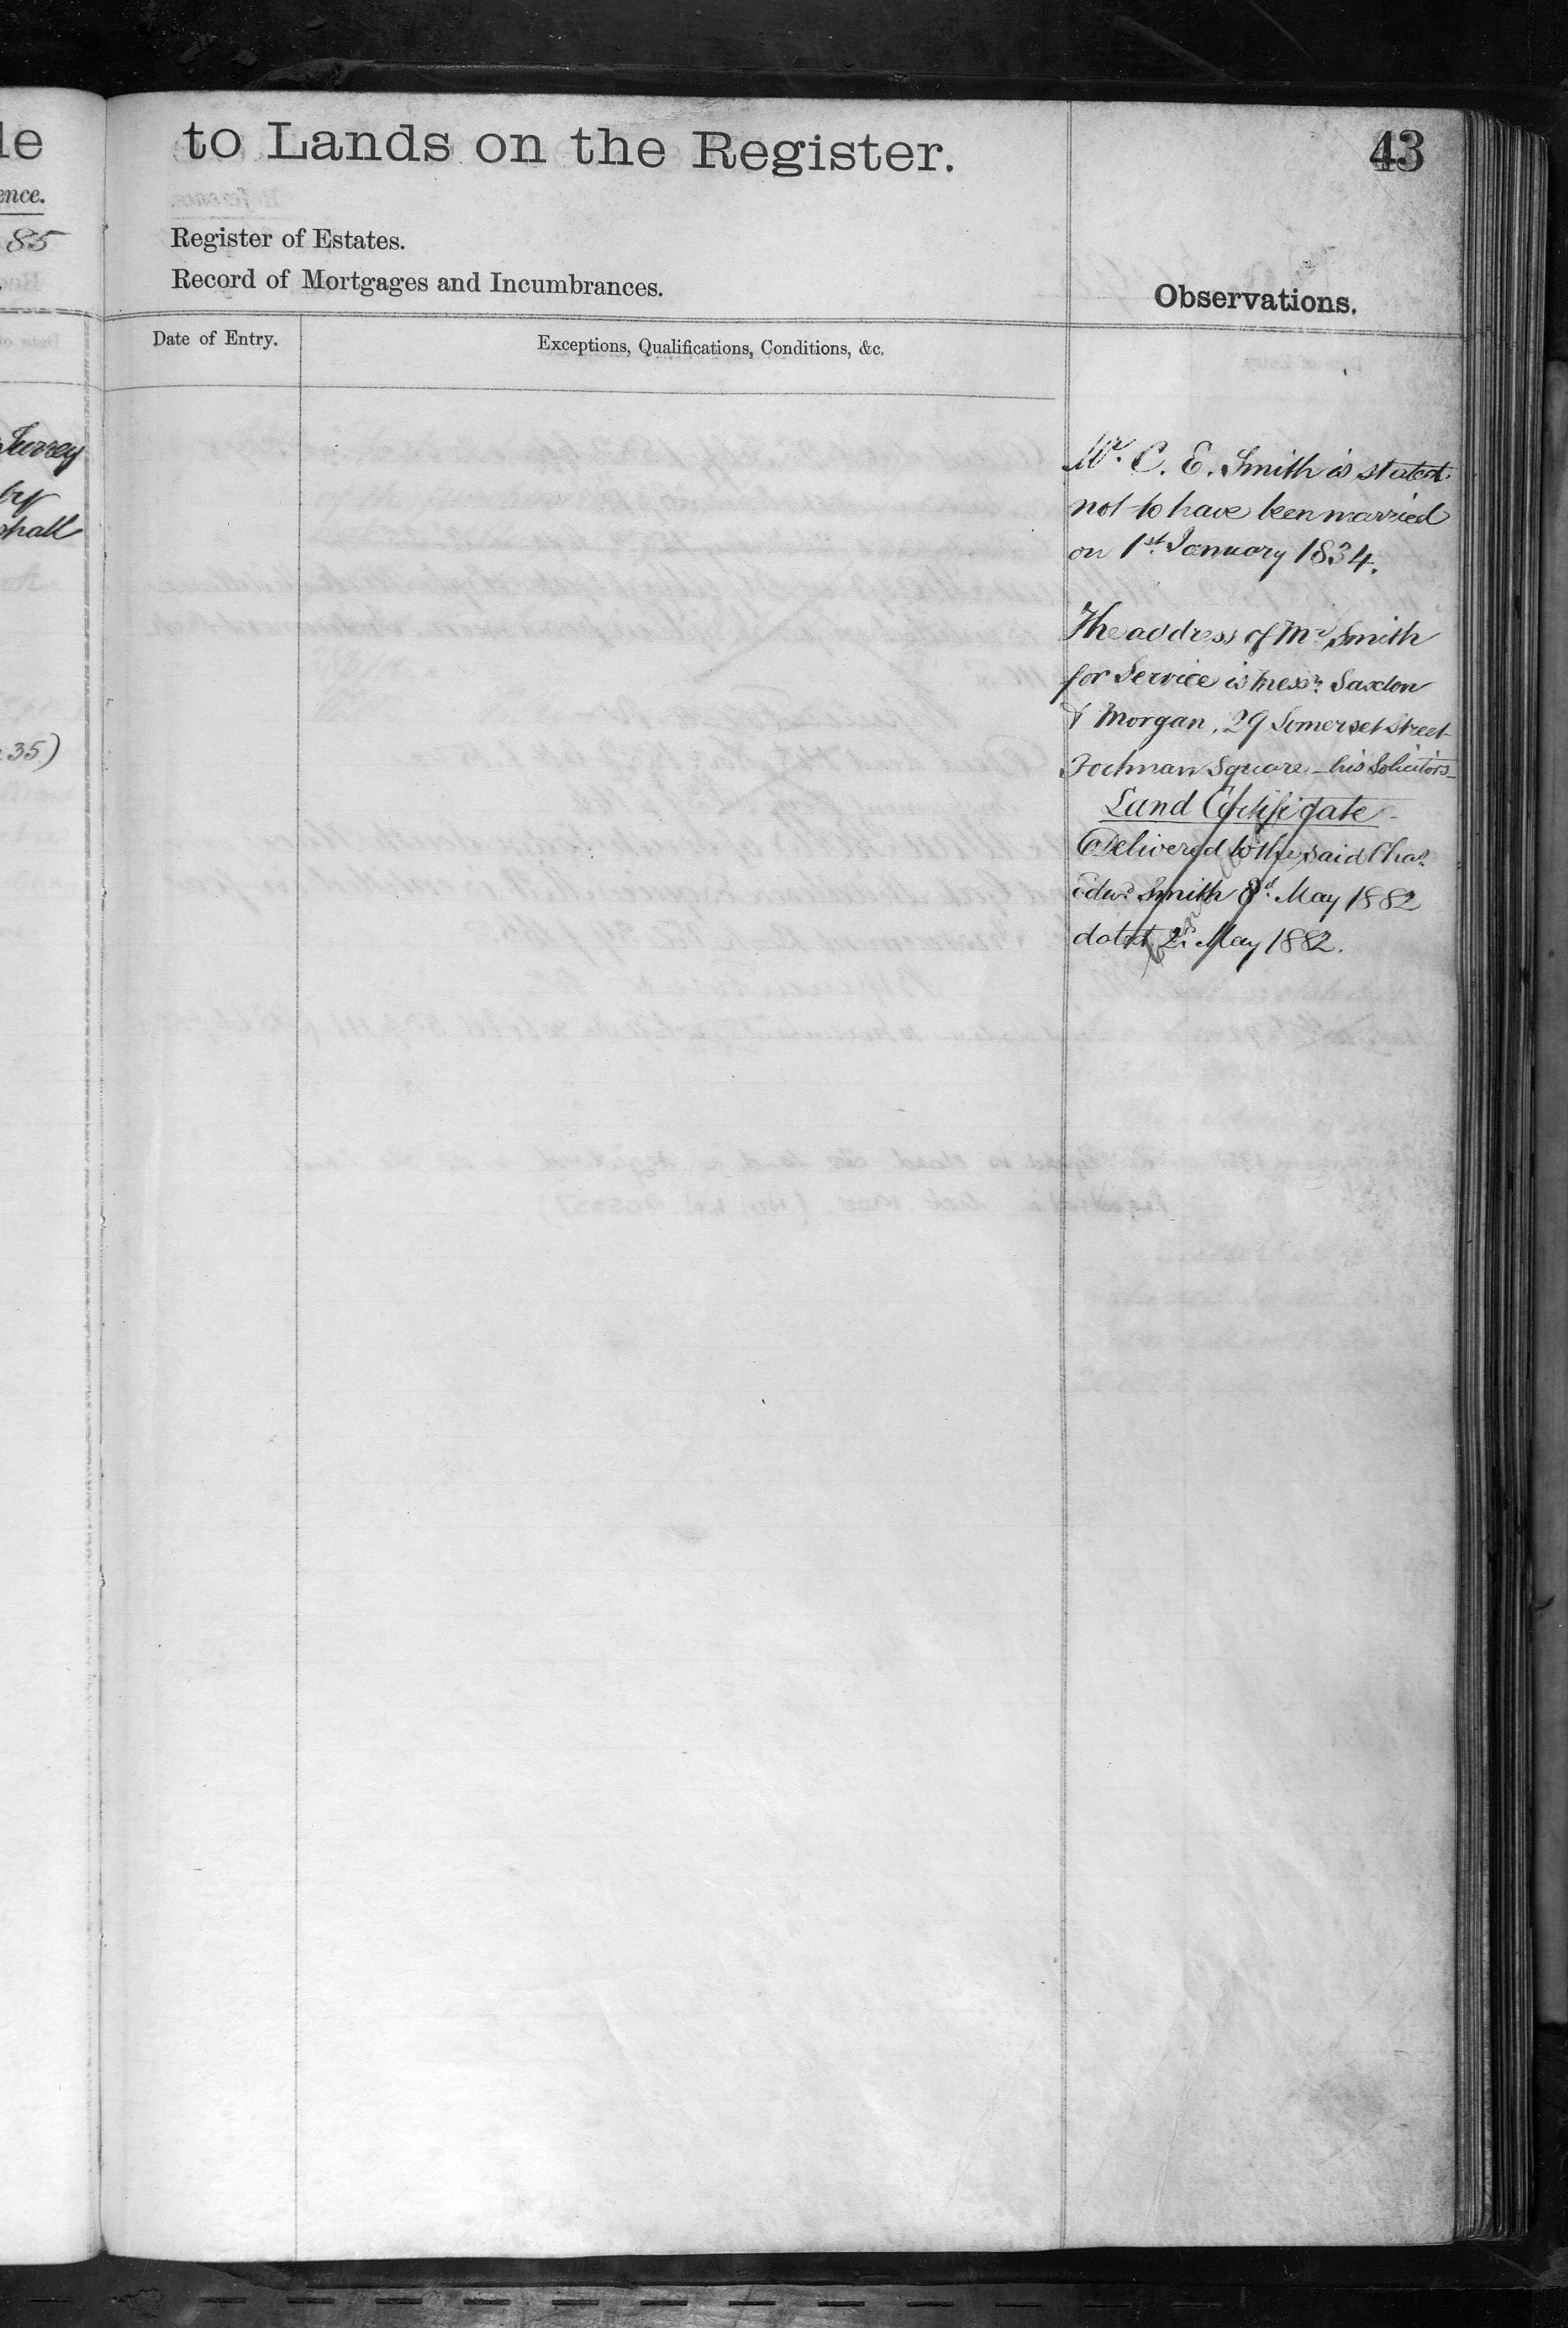 le
ence.
85
Surrey
by
shall
35)
to Lands on the Register.
43
Register of Estates.
Record of Mortgages and Incumbrances.
Observations.
Date of Entry.
Exceptions, Qualifications, Conditions, &c.
Mr. C. E. Smith is stated
not to have been married
on 1st January 1834.
The address of Mr Smith
for Service is Messrs Saxton
& Morgan, 29 Somerset Street
Portman Square – his Solicitors –
Land Certificate –
Delivered to the said Chas.
Edwd Smith 8d. May 1882
dated 2d. May 1882.